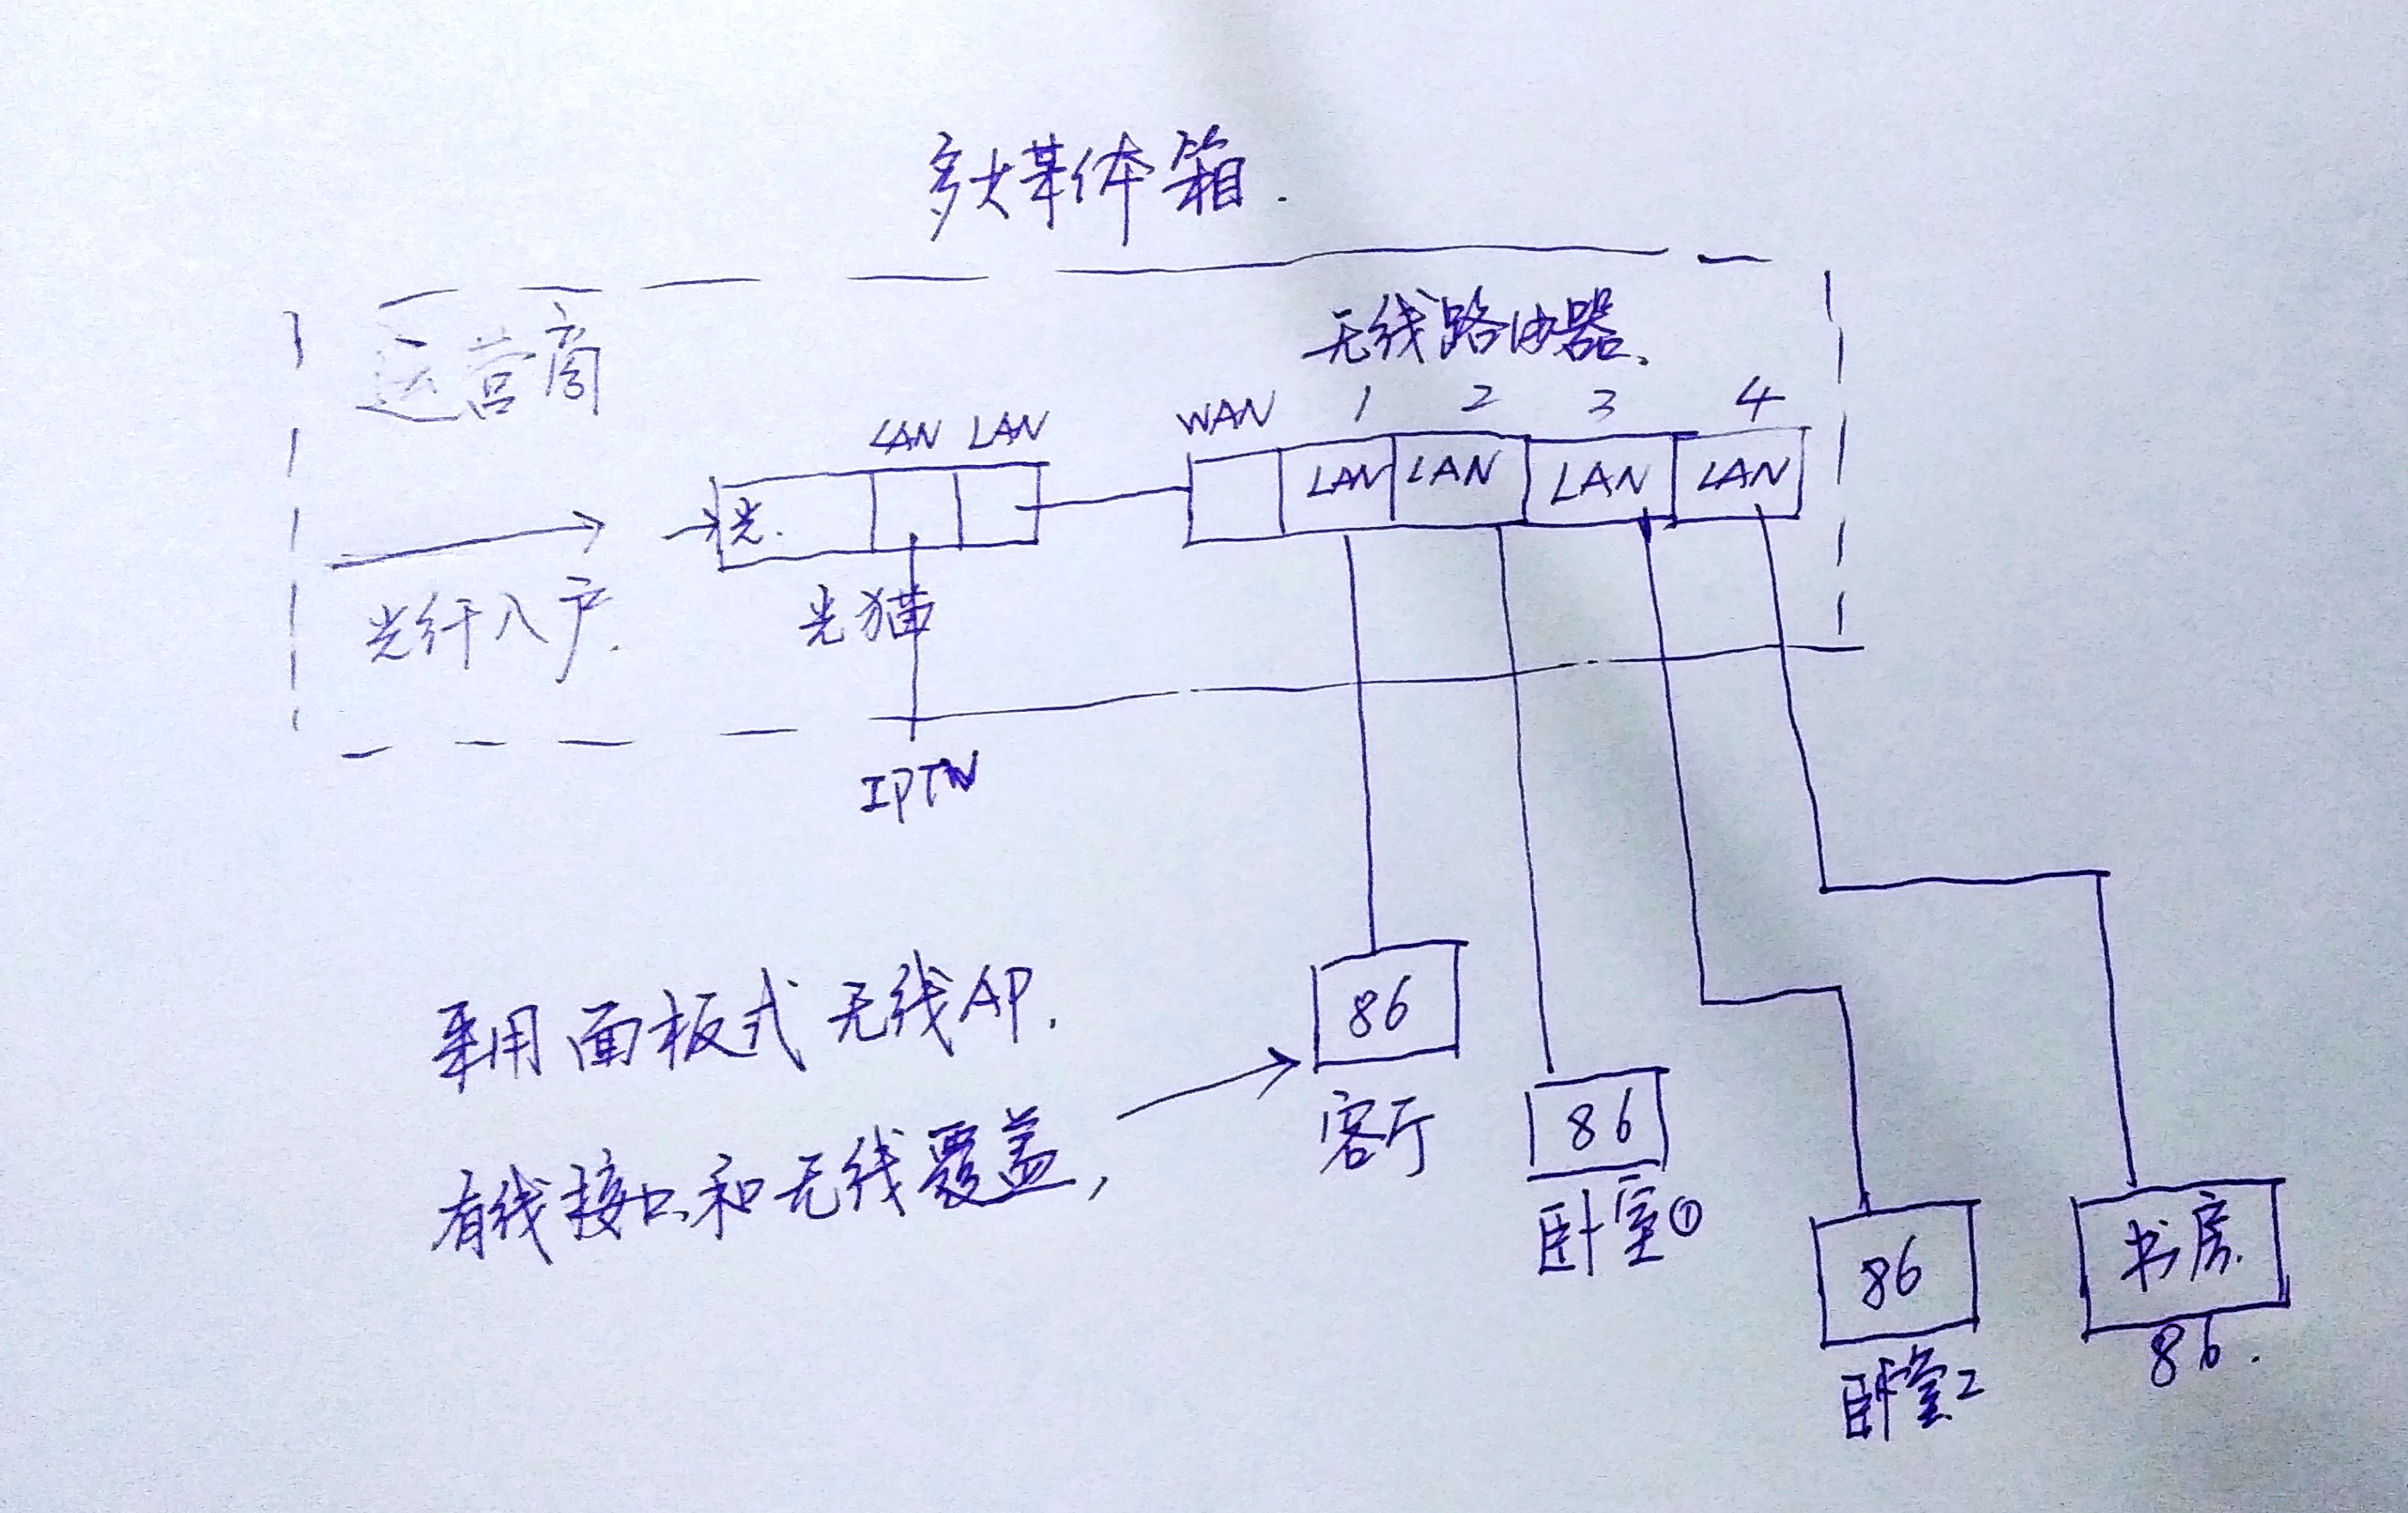 多媒体箱.
运营商
无线路由器.
LAN LAN
WAN 1 2 3 4
光.
LAN LAN LAN LAN
光纤入户.
光猫
IPTV
采用面板式无线AP.
86
有线接口和无线覆盖,
客厅
86
卧室①
86
书房.
卧室2
86.